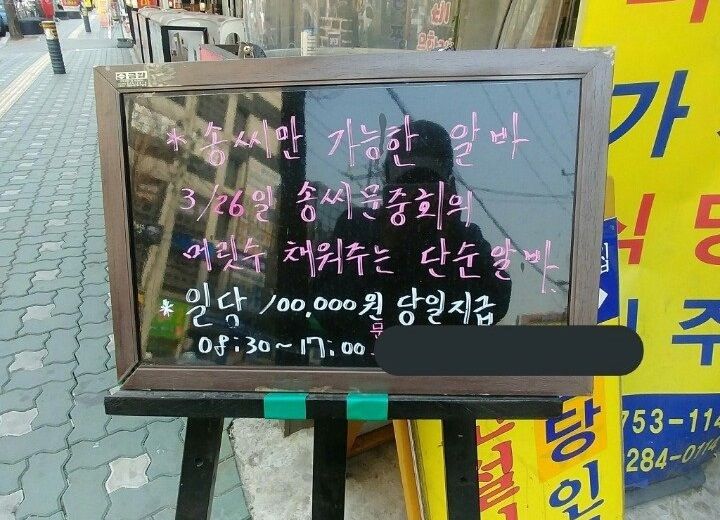 * 송씨만 가능한 알바
3/26일 송씨문중회의
머릿수 채워주는 단순알바.
* 일당 100,000원 당일지급
문
08:30~17:00
가
식당
주
753-114
284-0114
당인